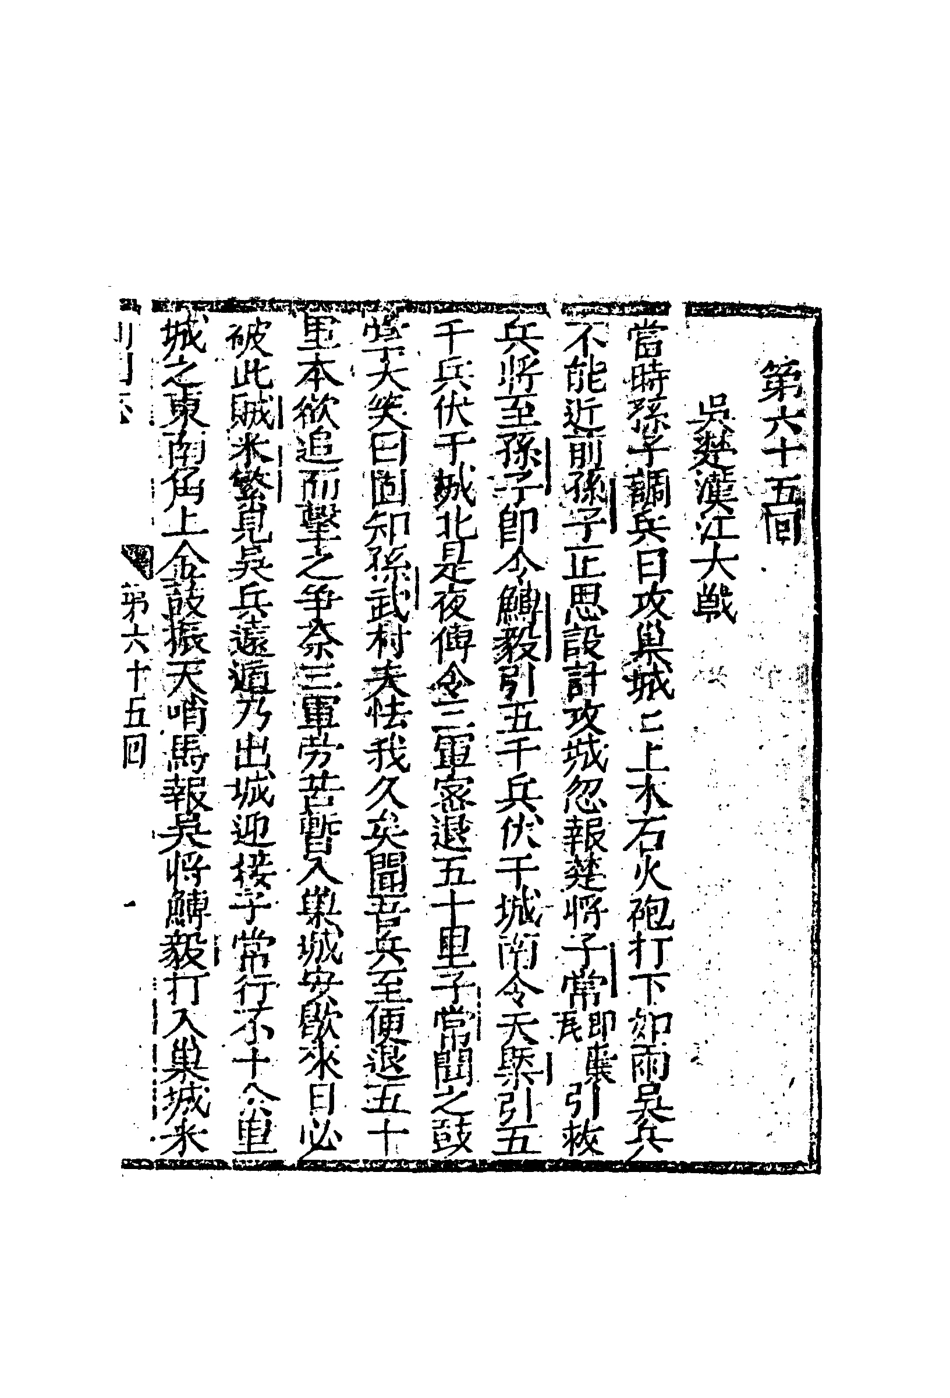 第六十五回
吳楚漢江大戰
當時孫子調兵曰攻巢城〻上木石火砲打下如雨吳兵
不能近前孫子正思設計攻城忽報楚將子常即囊瓦引救
兵將至孫子即令鱄毅引五千兵伏于城南令夫㮣引五
千兵伏于城北是夜傳令三軍密退五十里子常聞之鼓
掌大笑曰固知孫武村夫怯我久矣聞吾兵至便退五十
里本欲追而擊之爭奈三軍劳苦暫入巢城安歇來日必
被此賊米繁見吳兵遠遁乃出城迎接子常行不十余里
城之東南角上金鼓振天哨馬報吳將鱄毅打入巢城米
列國志
第六十五回
一